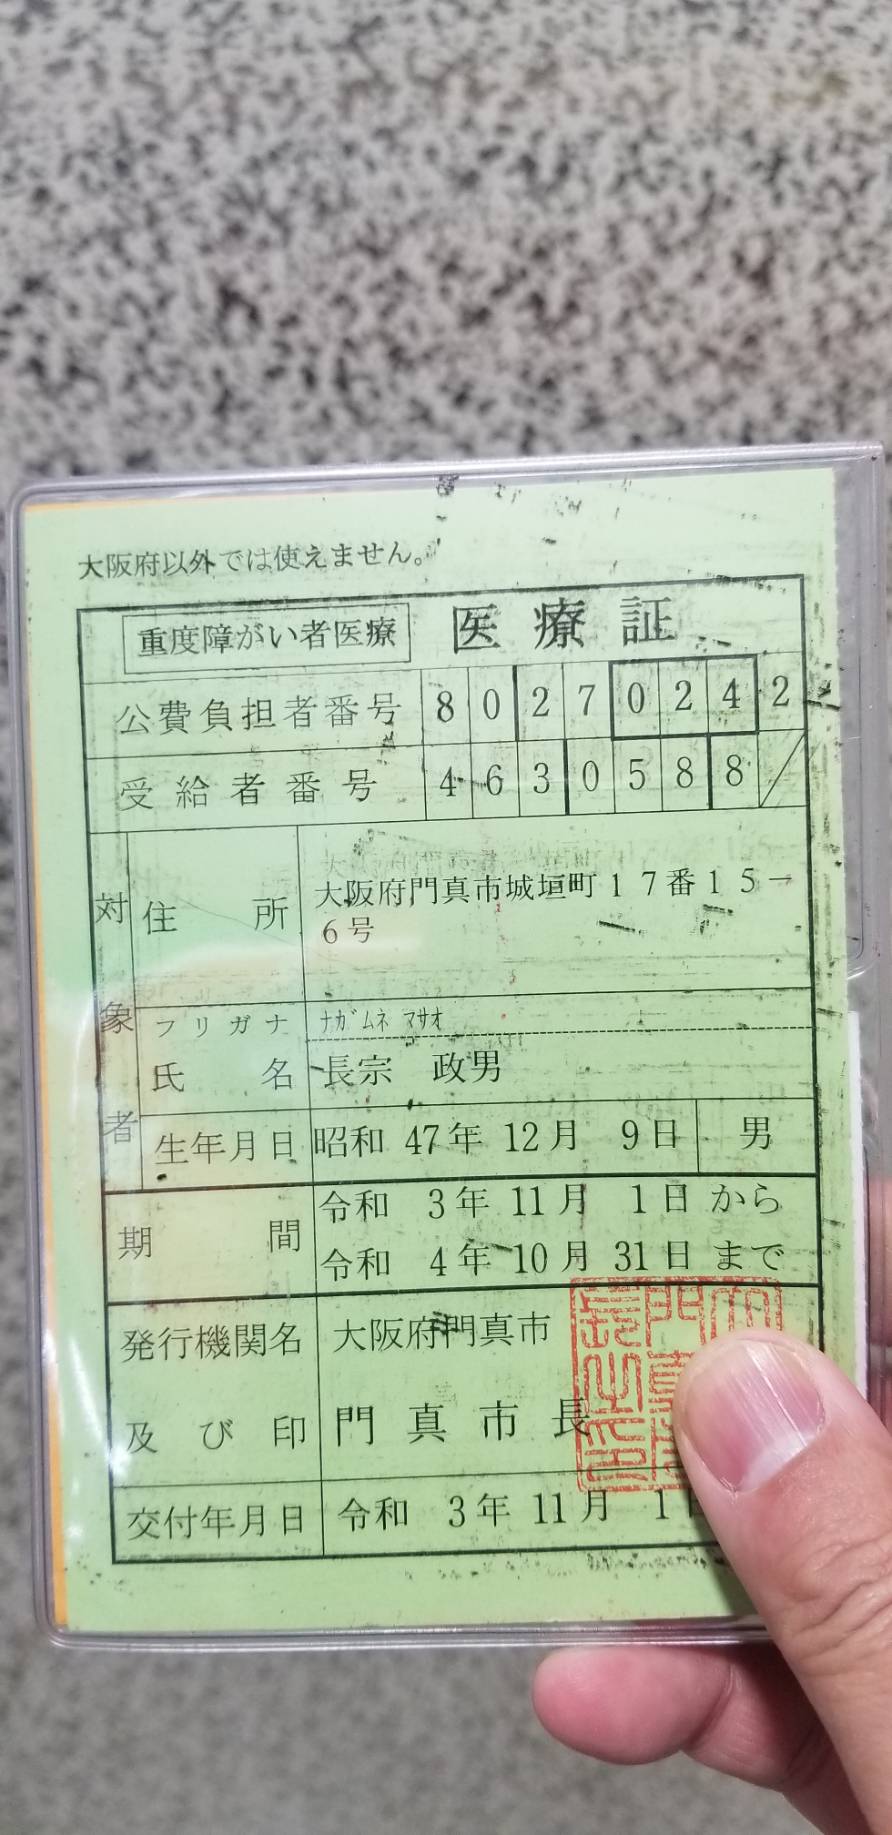 大阪府以外では使えません。
重度障がい者医療 医療証
公費負担者番号 8 0 2 7 0 2 4 2
受給者番号 4 6 3 0 5 8 8
対象者
住所 大阪府門真市城垣町17番15-
6号
フリガナ ﾅｶﾞﾑﾈ ﾏｻｵ
氏名 長宗 政男
生年月日 昭和 47年 12月 9日 男
期間 令和 3年 11月 1日 から
令和 4年 10月 31日 まで
発行機関名 大阪府門真市
及び印 門真市長
交付年月日 令和 3年 11月 1